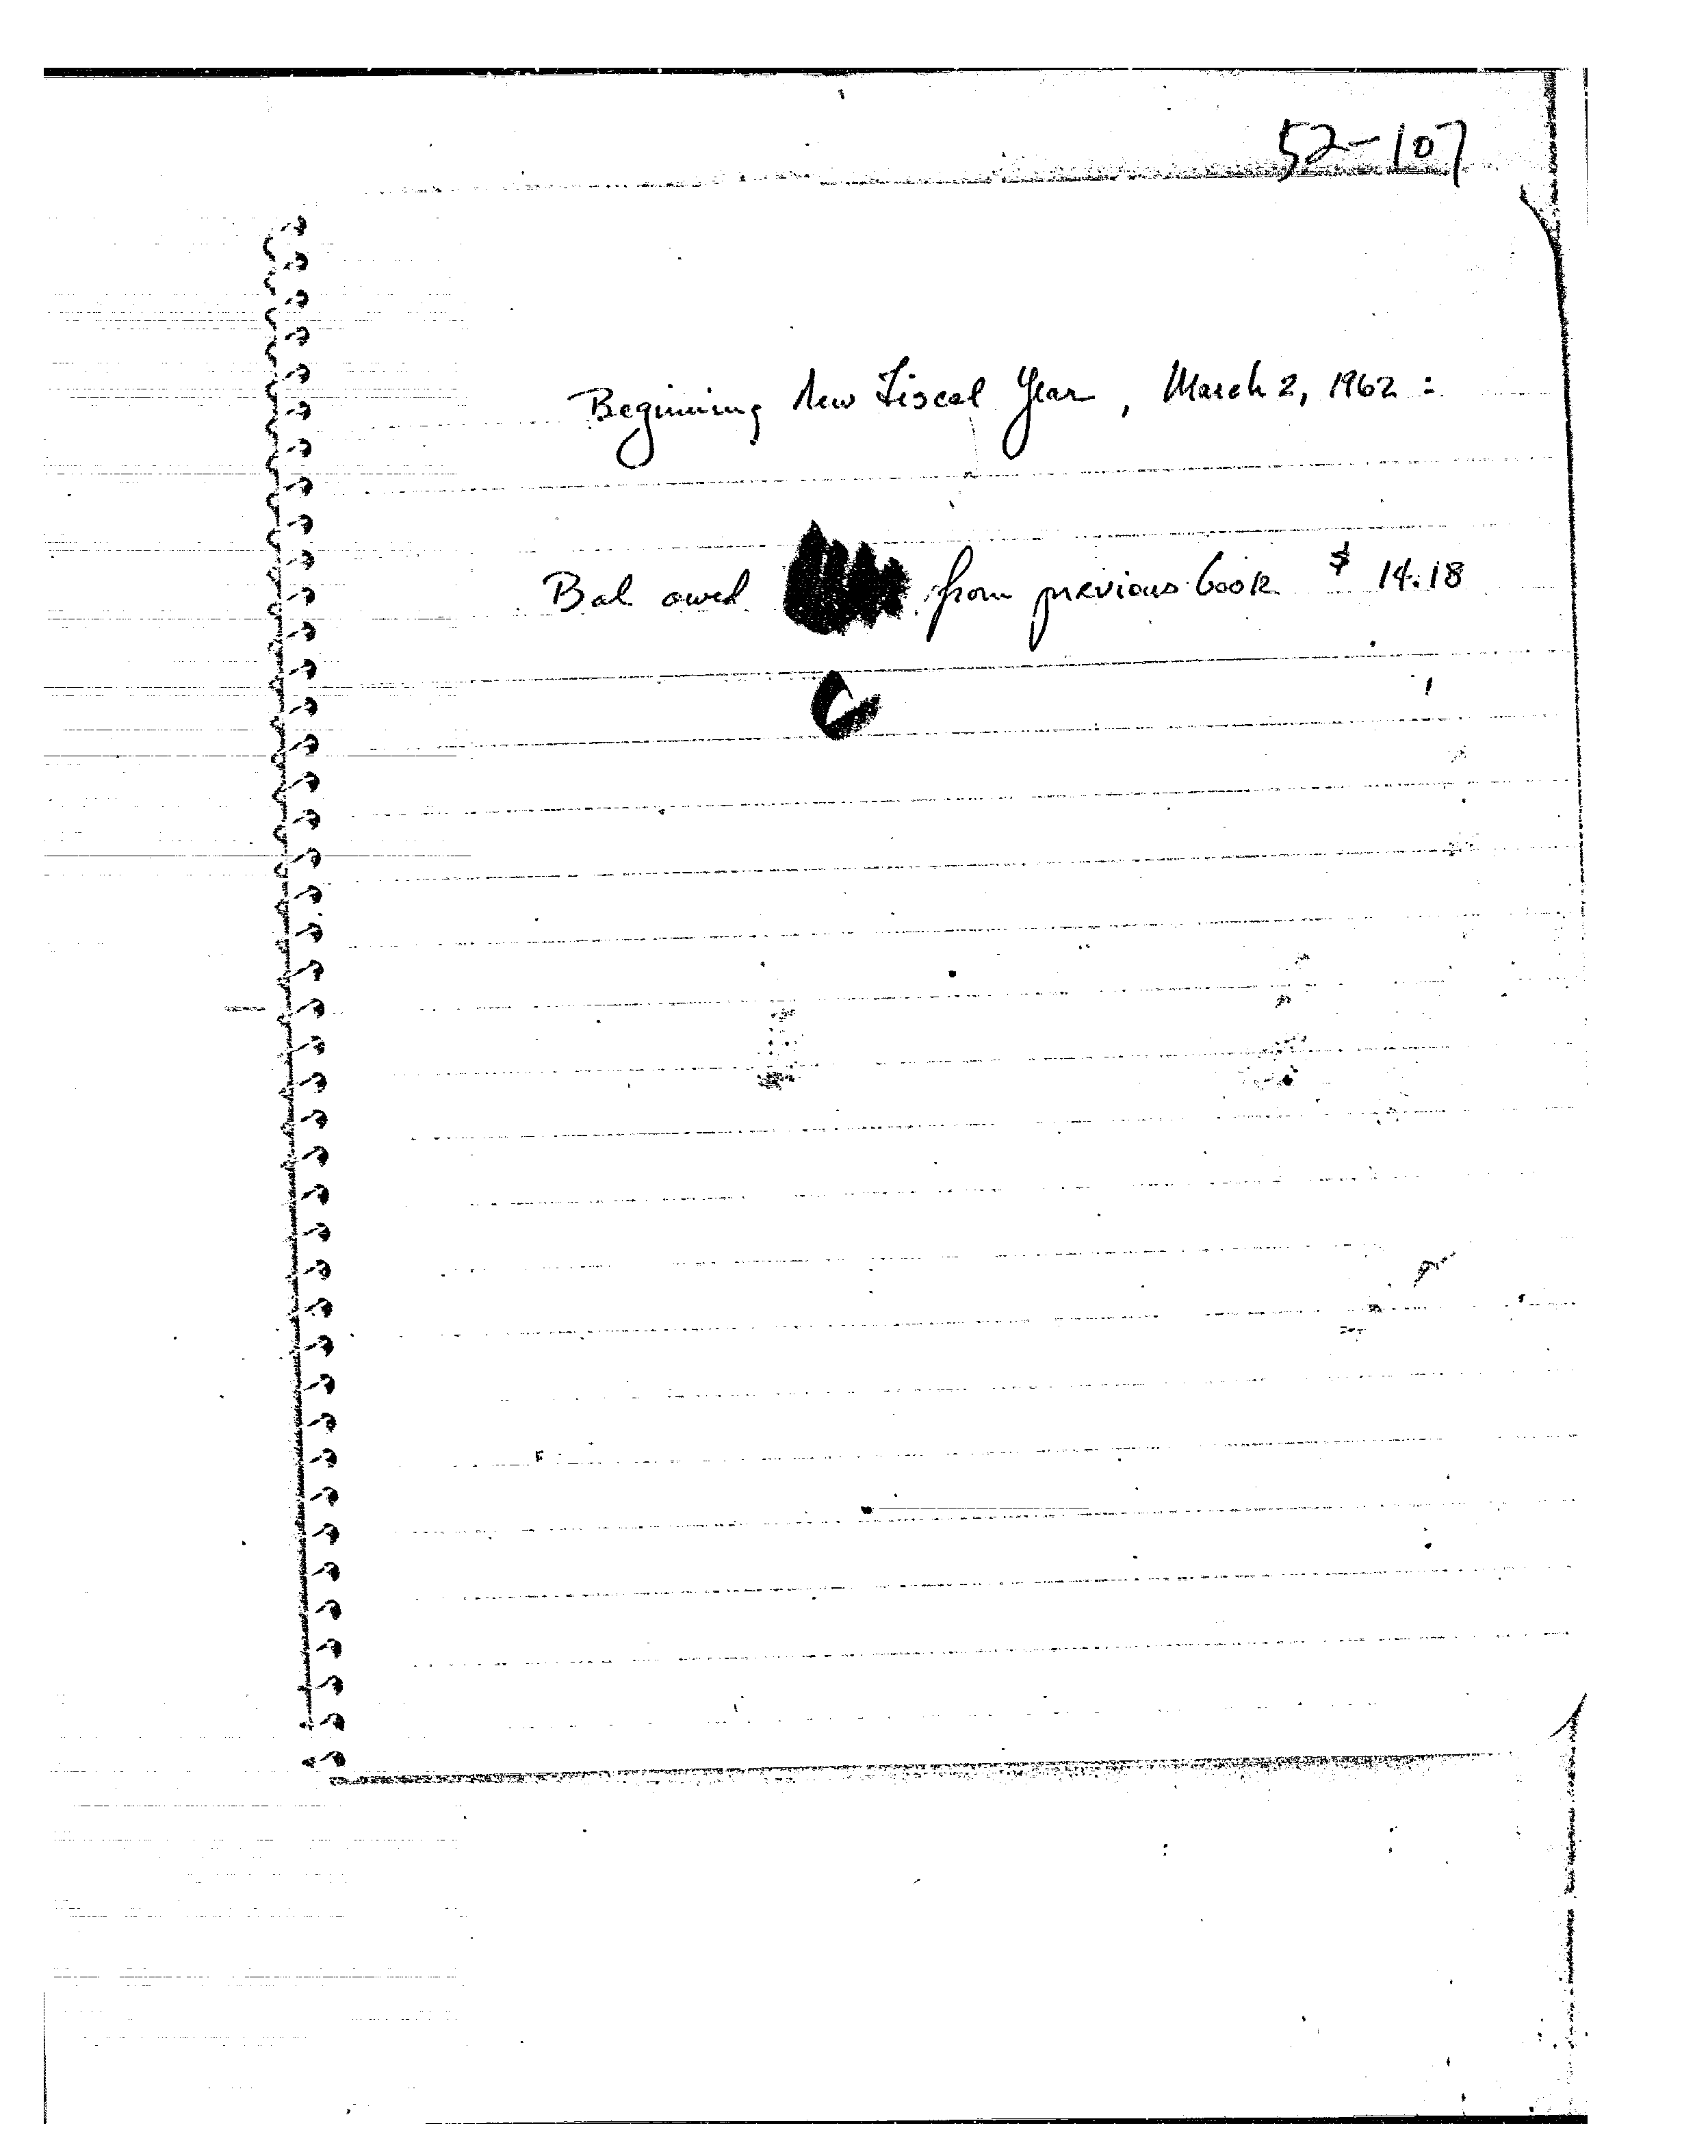 52-107
Beginning New Fiscal Year, March 2, 1962 :
Bal owed from previous book $ 14.18